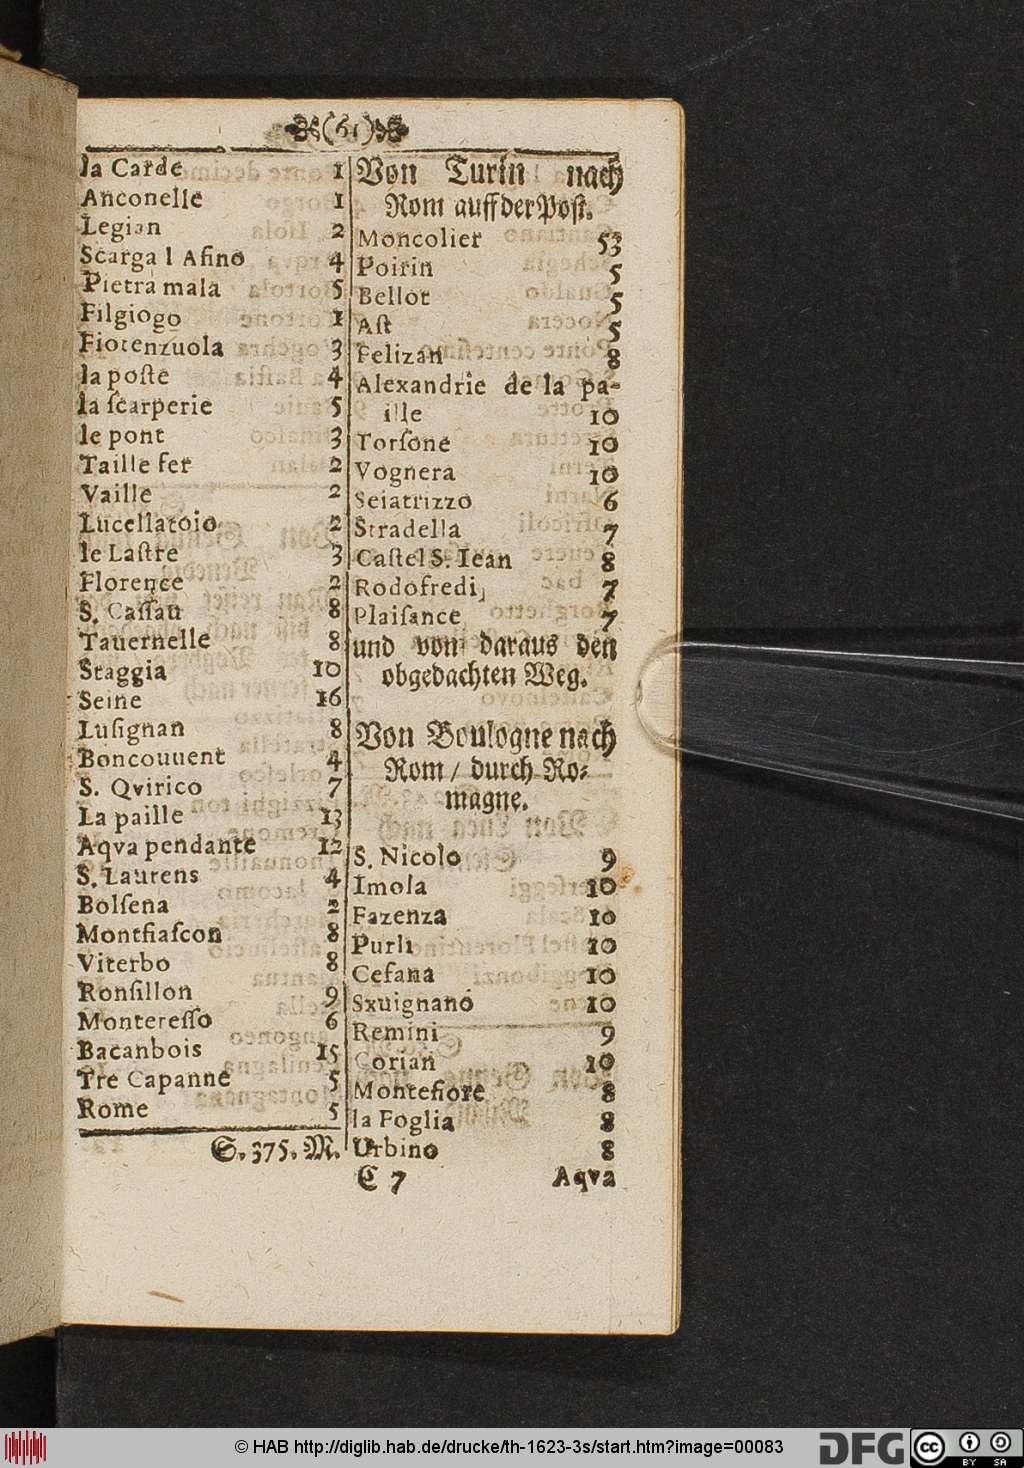 (61)
la Carde 1
Anconelle 1
Legian 2
Scarga l Asino 4
Pietra mala 5
Filgiogo 1
Fiorenzuola 3
la poſte 4
la ſcarperie 5
le pont 3
Taille fer 2
Vaille 2
Lucellatoio 2
le Laſtre 3
Florence 2
S. Caſſau 8
Tauernelle 8
Staggia 10
Seine 16
Luſignan 8
Boncouuent 4
S. Qvirico 7
La paille 13
Aqva pendante 12
S. Laurens 4
Bolſena 2
Montfiaſcon 8
Viterbo 8
Ronſillon 9
Montereſſo 6
Bacanbois 15
Tre Capanne 5
Rome 5
S. 375. M.
Von Turin nach
Rom auff der Poſt.
Moncolier 53
Poirin 5
Bellot 5
Aſt 5
Felizan 8
Alexandrie de la pa-
ille 10
Torſone 10
Vognera 10
Seiatrizzo 6
Stradella 7
Caſtel S. Iean 8
Rodofredi 7
Plaiſance 7
und von daraus den
obgedachten Weg.
Von Boulogne nach
Rom / durch Ro-
magne.
S. Nicolo 9
Imola 10
Fazenza 10
Purli 10
Ceſana 10
Sxuignano 10
Remini 9
Corian 10
Montefiore 8
la Foglia 8
Urbino 8
E 7 Aqva
© HAB http://diglib.hab.de/drucke/th-1623-3s/start.htm?image=00083
DFG
cc BY SA